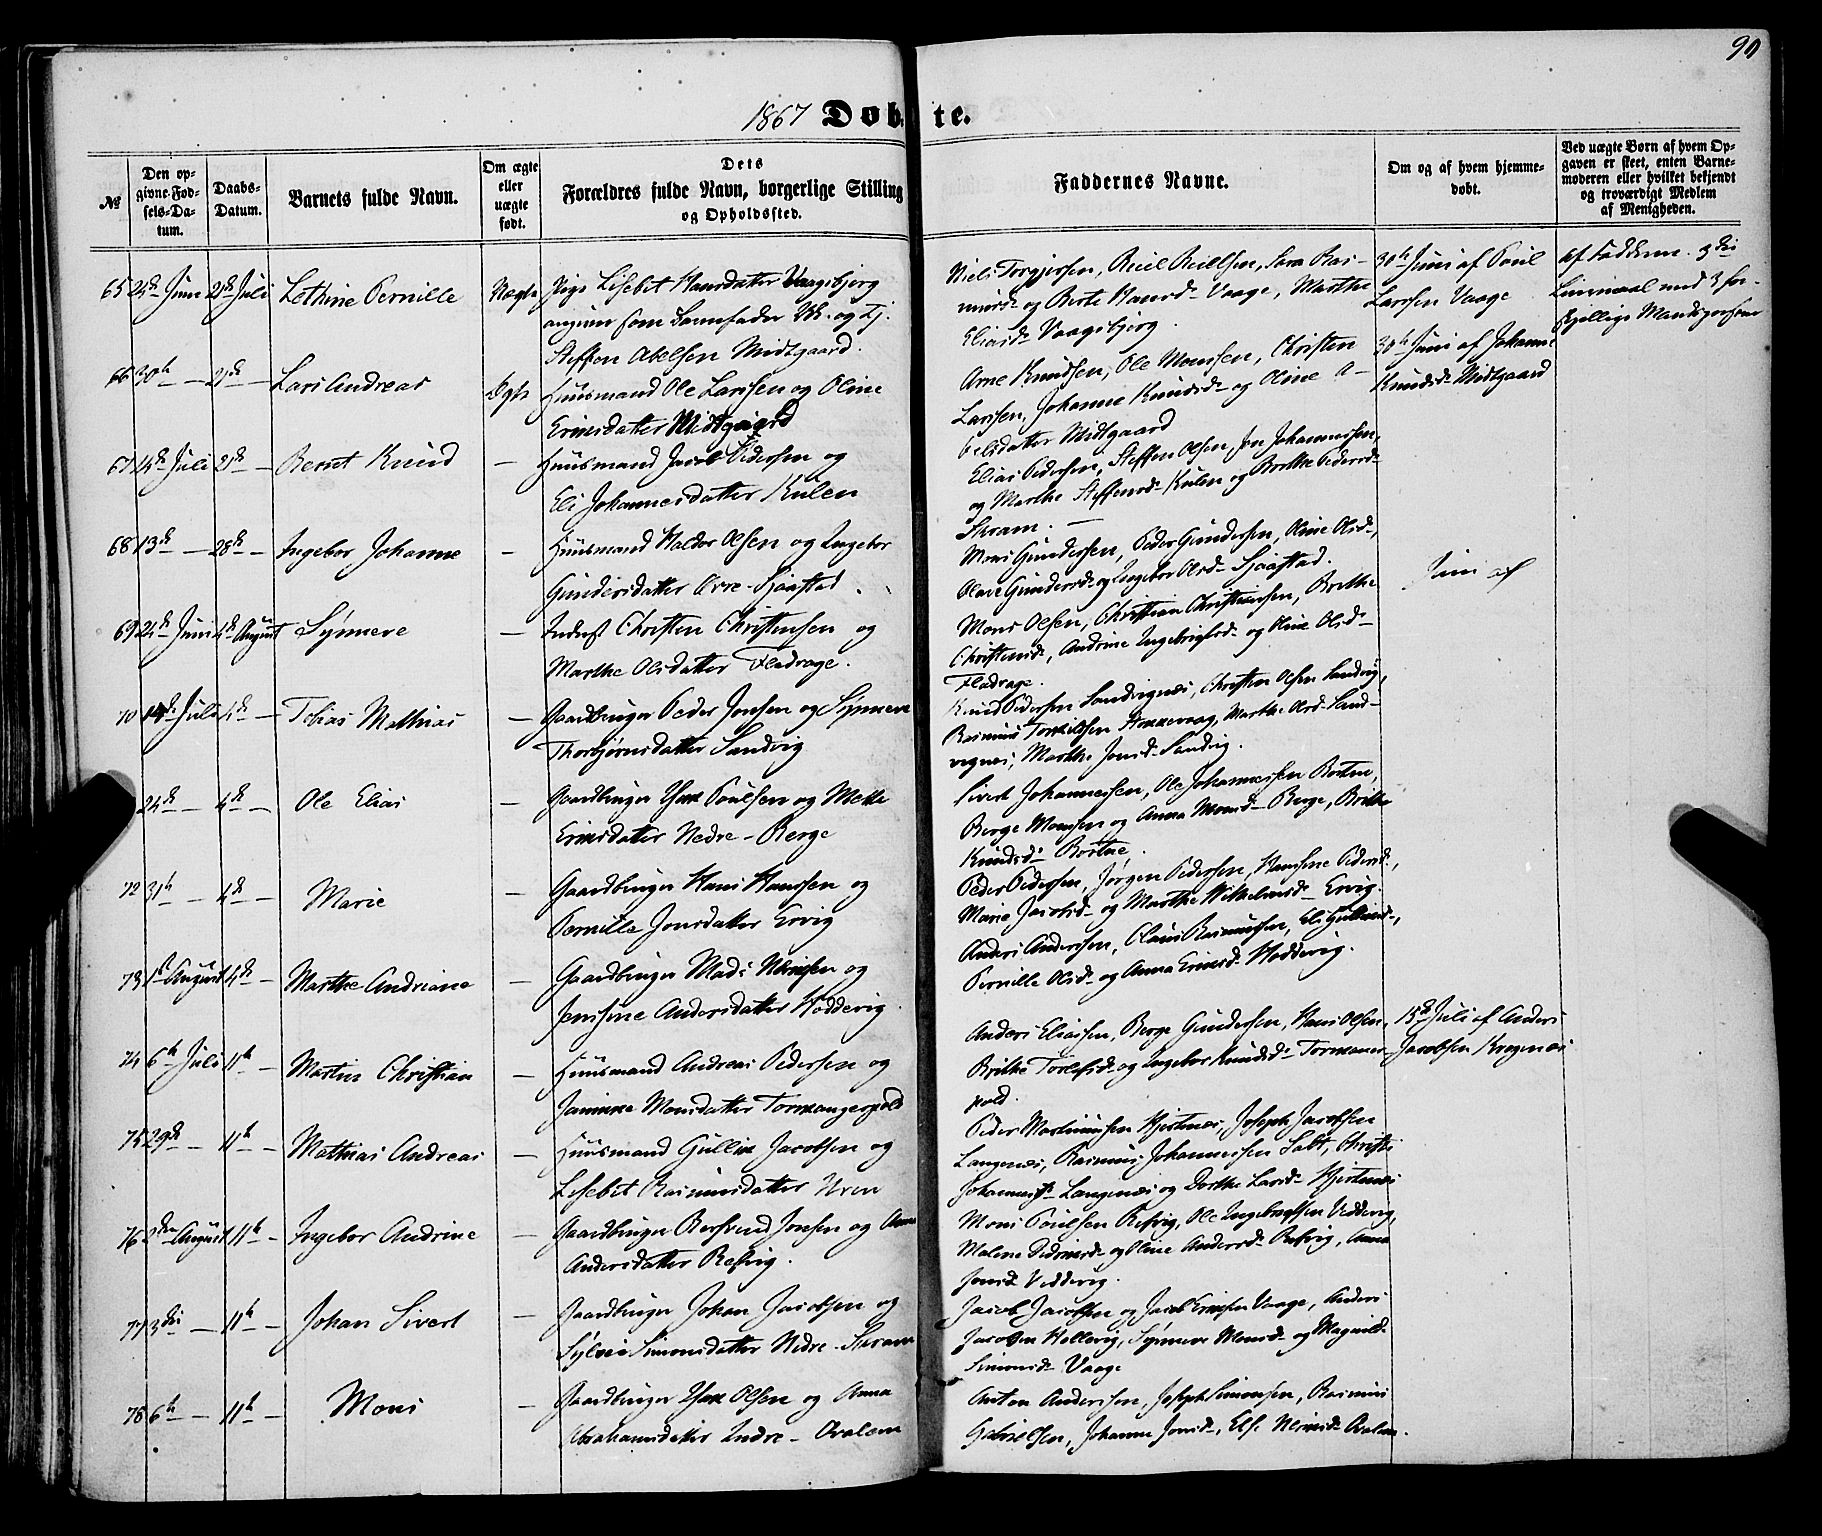 90
1867 Døbte.
No
Den opgivne Fødsels-Datum.
Daabs-Datum.
Barnets fulde Navn.
Om ægte eller uægte født.
Dets Forældres fulde Navn, borgerlige Stilling og Opholdssted.
Faddernes Navne.
Om og af hvem hjemmedøbt.
Ved uægte Børn af hvem Opgaven er skeet, enten Barnemoderen eller hvilket bekjendt og troværdigt Medlem af Menigheden.
65 Juni 21de Juli Lethine Pernille Uægte Pige Lisebet Hansdatter Vaagsbjerg
angiver som Barnefader Uk. og Tj.
Steffen Abelsen Midtgaard.
Niels Torgjersen, Sara Ras-
og Berte Hansd. Vaage, Marthe
Eliasd. Vaagsbjerg.
30te Juni af Poul
Larssen Vaage
af Fadderne. 3die
Leiermaal med 3 for-
skjellige Mandspersoner
66 30te — 21de — Lars Andreas Ægte Huusmand Ole Larssen og Oline
datter Midtgaard
Arne Knudsen, Ole Monssen, Christen
Larssen, Johanne Knudsd. og Oline A-
belsdatter Midtgaard
30te Juni af Johanne
Knudsd. Midtgaard
67 Juli 21de — Bernt Knud — Huusmand Jacob Pedersen og
Eli Johannesdatter Kulen
Elias Pedersen, Steffen Olsen, Johannessen,
og Marthe Steffensd. Kulen og Brithe Pedersd.
Skram. —
68 13de — 28de — Ingebor Johanne — Huusmand Haldor Olsen og Ingebor
Gundersdatter Øvre-Sjaastad.
Mons Gundersen, Peder Gundersen, Oline Olsd.,
Olave Gundersd. og Ingebor Olsd. Sjaastad.
Juni af
69 24de Juni 4de August Synneve — Inderst Christen Christensen og
Marthe Olsdatter Fladrage.
Mons Olsen, Christian Christensen, Brithe
Christensd., Andrine Ingebrigtsd. og Oline Olsd.
Fladrage.
70 Juli 4de — Tobias Mathias — Gaardbruger Peder Jonsen og Synneve
Thorbjørnsdatter Sandvig
Knud Pedersen Sandvignes, Christen Olsen Sandvig,
Rasmus Torkilssen Stokkevaag, Marthe Olsd. Sand-
vignes, Marthe Jonsd. Sandvig.
24de — 4de — Ole Elias — Gaardbruger Poulsen og Mette
datter Nedre-Berge
Sivert Johannessen, Ole Johannessen Bortne,
Berge Monsen og Anna Monsd. Berge, Brithe
Knudsd. Bortne.
72 31te — 4de — Marie — Gaardbruger Hans Hanssen og
Pernille Jonsdatter Ervig
Peder Pedersen, Jørgen Pedersen, Hansine Pedersd.,
Marie Jacobsd. og Marthe Wilhelmsd. Ervig.
73 1ste August 4de — Marthe Andriane — Gaardbruger Mads og
Jensine Andersdatter Hoddevig.
Anders Anderssen, Claus Rasmussen, Eli
Pernille Olsd. og Anna Hoddevig.
74 6te Juli 11te — Martin Christian — Huusmand Andreas Pedersen og
Jannike Monsdatter Tormangerpold
Anders Eliassen, Berge Gundersen, Hans Olsen,
Brithe Torlefsd. og Ingebor Knudsd. Tormanger-
pold.
15de Juli af Anders
Jacobsen Krogenæs
75 29de — 11te — Mathias Andreas — Huusmand Gullik Jacobsen og
Lisebet Rasmusdatter Uren
Peder Martinussen Hjertnes, Joseph Jacobsen
Langenes, Rasmus Johannessen Salt, Christi
Johannesd. Langenes og Dorthe Larsd. Hjertnes
76 2den August 11te — Ingebor Andrine — Gaardbruger Jonsen og Anne
Andersdatter Refvig.
Mons Poulsen Refvig, Ole Ingebrigtsen Veddevig,
Malene og Oline Andersd. Refvig, Anna
Jonsd. Veddevig.
77 3die — 11te — Johan Sivert — Gaardbruger Johan Jacobsen og
Sylvi Simonsdatter Nedre-Skram
Jacob Jacobsen og Jacob Vaage, Anders
Jacobsen Hellevig, Synneve Monsd. og Magnild
Simonsd. Vaage
78 6te — 11te — Mons — Gaardbruger Olsen og Anna
Abrahamsdatter Indre-Ovalem
Anton Anderssen, Joseph Simonsen, Rasmus
Gabrielsen, Johanne Jonsd., Else Oralem.